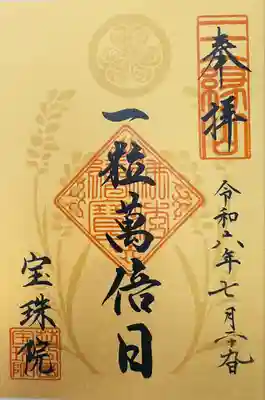 奉拝
一粒萬倍日
令和六年七月
宝珠院